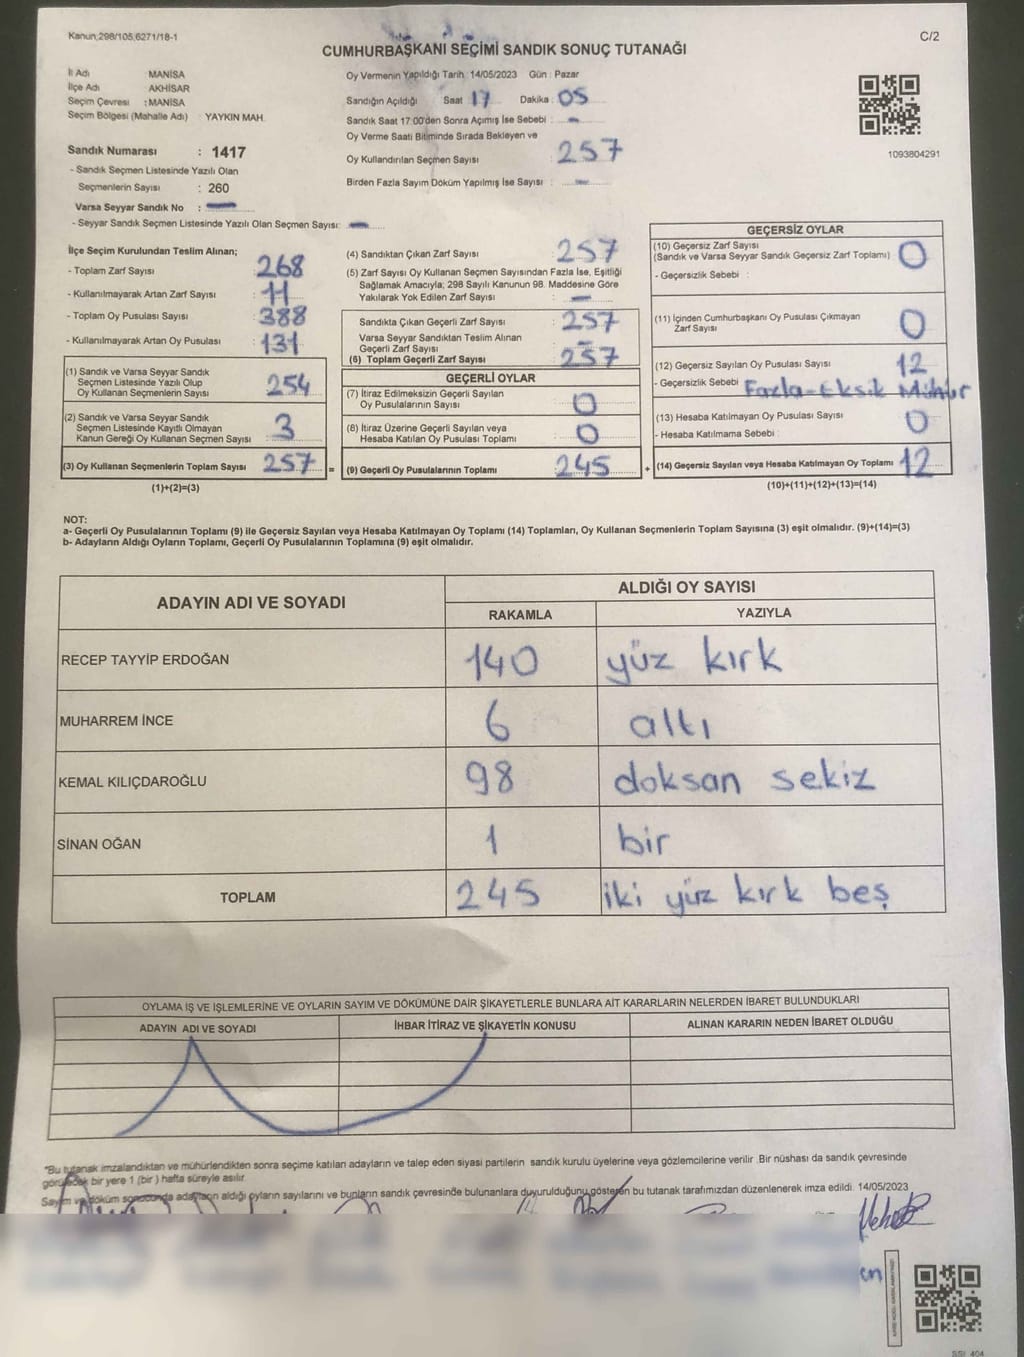 Kanun;298/105,6271/18-1
C/2
CUMHURBAŞKANI SEÇİMİ SANDIK SONUÇ TUTANAĞI
İl Adı MANİSA
İlçe Adı AKHİSAR
Seçim Çevresi : MANİSA
Seçim Bölgesi (Mahalle Adı) YAYKIN MAH.
Sandık Numarası : 1417
- Sandık Seçmen Listesinde Yazılı Olan
Seçmenlerin Sayısı : 260
Varsa Seyyar Sandık No : -
- Seyyar Sandık Seçmen Listesinde Yazılı Olan Seçmen Sayısı: -
Oy Vermenin Yapıldığı Tarih 14/05/2023 Gün : Pazar
Sandığın Açıldığı Saat 17 Dakika : 05
Sandık Saat 17:00'den Sonra Açımış İse Sebebi : -
Oy Verme Saati Bitiminde Sırada Bekleyen ve
Oy Kullandırılan Seçmen Sayısı : 257
Birden Fazla Sayım Döküm Yapılmış İse Sayısı : -
1093804291
İlçe Seçim Kurulundan Teslim Alınan;
- Toplam Zarf Sayısı : 268
- Kullanılmayarak Artan Zarf Sayısı : 11
- Toplam Oy Pusulası Sayısı : 388
- Kullanılmayarak Artan Oy Pusulası : 131
(1) Sandık ve Varsa Seyyar Sandık
Seçmen Listesinde Yazılı Olup
Oy Kullanan Seçmenlerin Sayısı : 254
(2) Sandık ve Varsa Seyyar Sandık
Seçmen Listesinde Kayıtlı Olmayan
Kanun Gereği Oy Kullanan Seçmen Sayısı : 3
(3) Oy Kullanan Seçmenlerin Toplam Sayısı : 257 =
(1)+(2)=(3)
(4) Sandıktan Çıkan Zarf Sayısı : 257
(5) Zarf Sayısı Oy Kullanan Seçmen Sayısından Fazla İse, Eşitliği
Sağlamak Amacıyla; 298 Sayılı Kanunun 98. Maddesine Göre
Yakılarak Yok Edilen Zarf Sayısı : -
Sandıkta Çıkan Geçerli Zarf Sayısı : 257
Varsa Seyyar Sandıktan Teslim Alınan
Geçerli Zarf Sayısı : -
(6) Toplam Geçerli Zarf Sayısı : 257
GEÇERLİ OYLAR
(7) İtiraz Edilmeksizin Geçerli Sayılan
Oy Pusulalarının Sayısı : 0
(8) İtiraz Üzerine Geçerli Sayılan veya
Hesaba Katılan Oy Pusulası Toplamı : 0
(9) Geçerli Oy Pusulalarının Toplamı : 245 +
GEÇERSİZ OYLAR
(10) Geçersiz Zarf Sayısı
(Sandık ve Varsa Seyyar Sandık Geçersiz Zarf Toplamı) : 0
- Geçersizlik Sebebi :
(11) İçinden Cumhurbaşkanı Oy Pusulası Çıkmayan
Zarf Sayısı : 0
(12) Geçersiz Sayılan Oy Pusulası Sayısı : 12
- Geçersizlik Sebebi : Fazla-Eksik Mühür
(13) Hesaba Katılmayan Oy Pusulası Sayısı : 0
- Hesaba Katılmama Sebebi :
(14) Geçersiz Sayılan veya Hesaba Katılmayan Oy Toplamı : 12
(10)+(11)+(12)+(13)=(14)
NOT:
a- Geçerli Oy Pusulalarının Toplamı (9) ile Geçersiz Sayılan veya Hesaba Katılmayan Oy Toplamı (14) Toplamları, Oy Kullanan Seçmenlerin Toplam Sayısına (3) eşit olmalıdır. (9)+(14)=(3)
b- Adayların Aldığı Oyların Toplamı, Geçerli Oy Pusulalarının Toplamına (9) eşit olmalıdır.
ADAYIN ADI VE SOYADI ALDIĞI OY SAYISI
RAKAMLA YAZIYLA
RECEP TAYYİP ERDOĞAN 140 yüz kırk
MUHARREM İNCE 6 altı
KEMAL KILIÇDAROĞLU 98 doksan sekiz
SİNAN OĞAN 1 bir
TOPLAM 245 iki yüz kırk beş
OYLAMA İŞ VE İŞLEMLERİNE VE OYLARIN SAYIM VE DÖKÜMÜNE DAİR ŞİKAYETLERLE BUNLARA AİT KARARLARIN NELERDEN İBARET BULUNDUKLARI
ADAYIN ADI VE SOYADI İHBAR İTİRAZ VE ŞİKAYETİN KONUSU ALINAN KARARIN NEDEN İBARET OLDUĞU
*Bu tutanak imzalandıktan ve mühürlendikten sonra seçime katılan adayların ve talep eden siyasi partilerin sandık kurulu üyelerine veya gözlemcilerine verilir. Bir nüshası da sandık çevresinde
görülecek bir yere 1 (bir) hafta süreyle asılır.
Sayım ve döküm sonucunda adayların aldığı oyların sayılarını ve bunların sandık çevresinde bulunanlara duyurulduğunu gösteren bu tutanak tarafımızdan düzenlenerek imza edildi. 14/05/2023
en